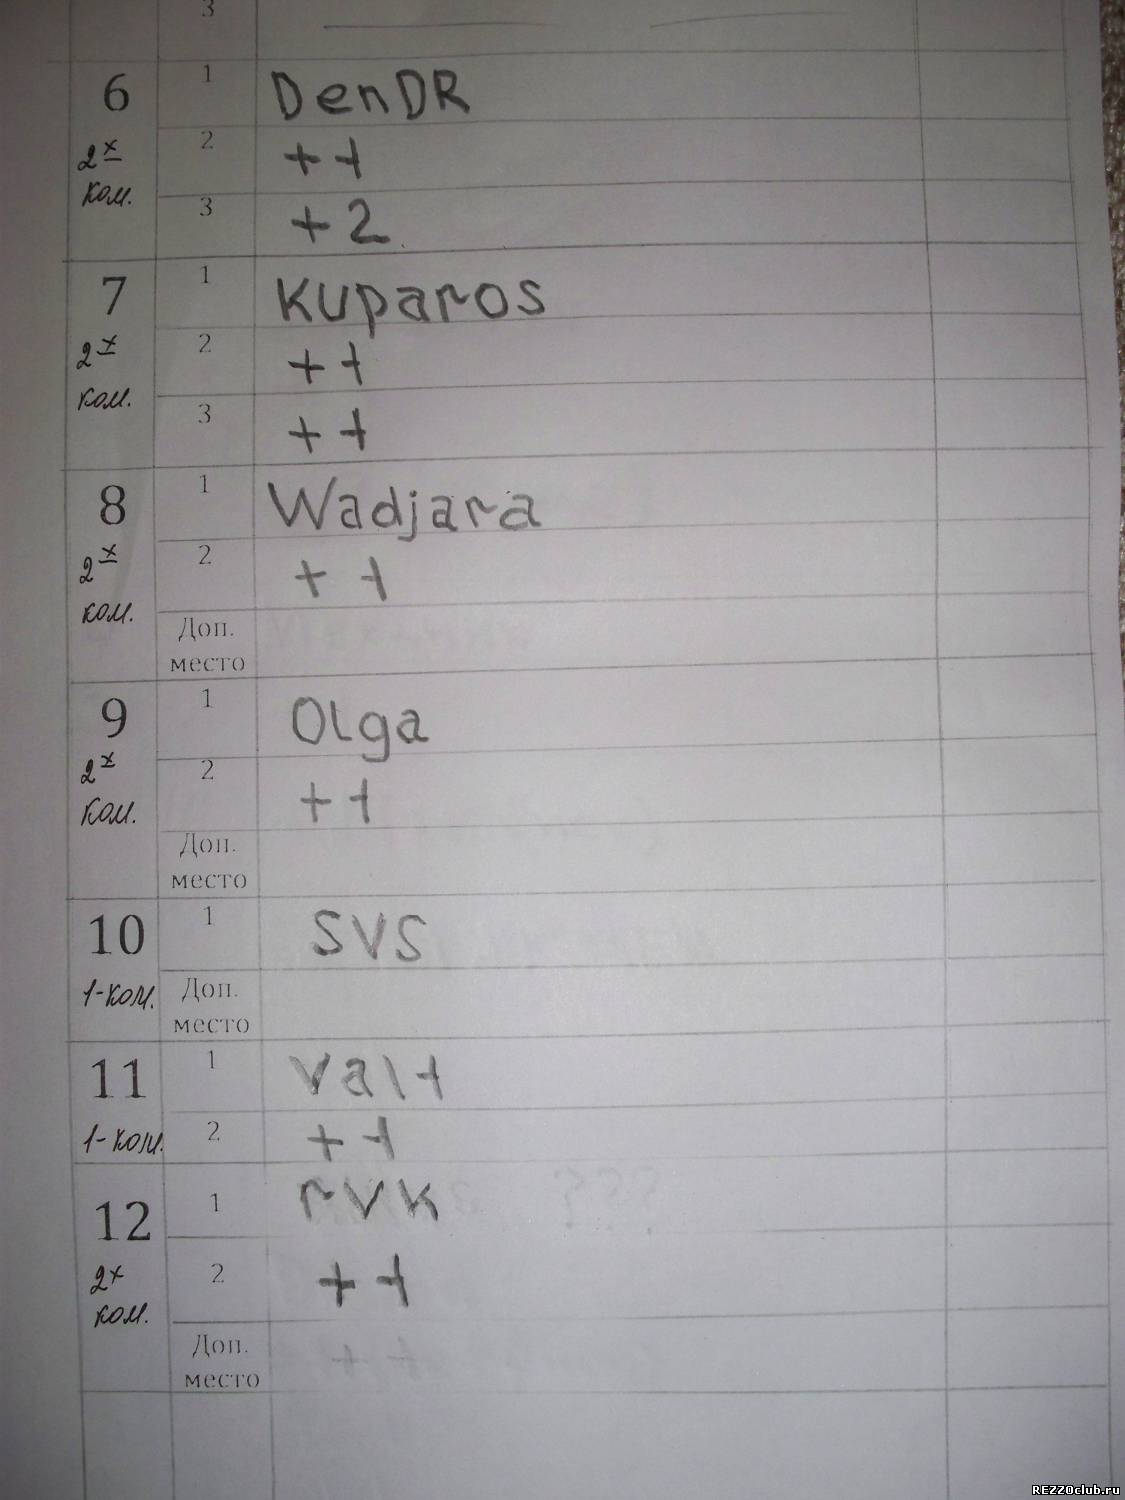 3
6 1 DenDR
2х 2 ++
ком. 3 +2
7 1 Kuparos
2х 2 ++
ком. 3 ++
8 1 Wadjara
2х 2 ++
ком. Доп.
место
9 1 Olga
2х 2 ++
ком. Доп.
место
10 1 SVS
1-ком. Доп.
место
11 1 Valt
1-ком. 2 ++
12 1 rvk
2х 2 ++
ком. Доп.
место
REZZOclub.ru